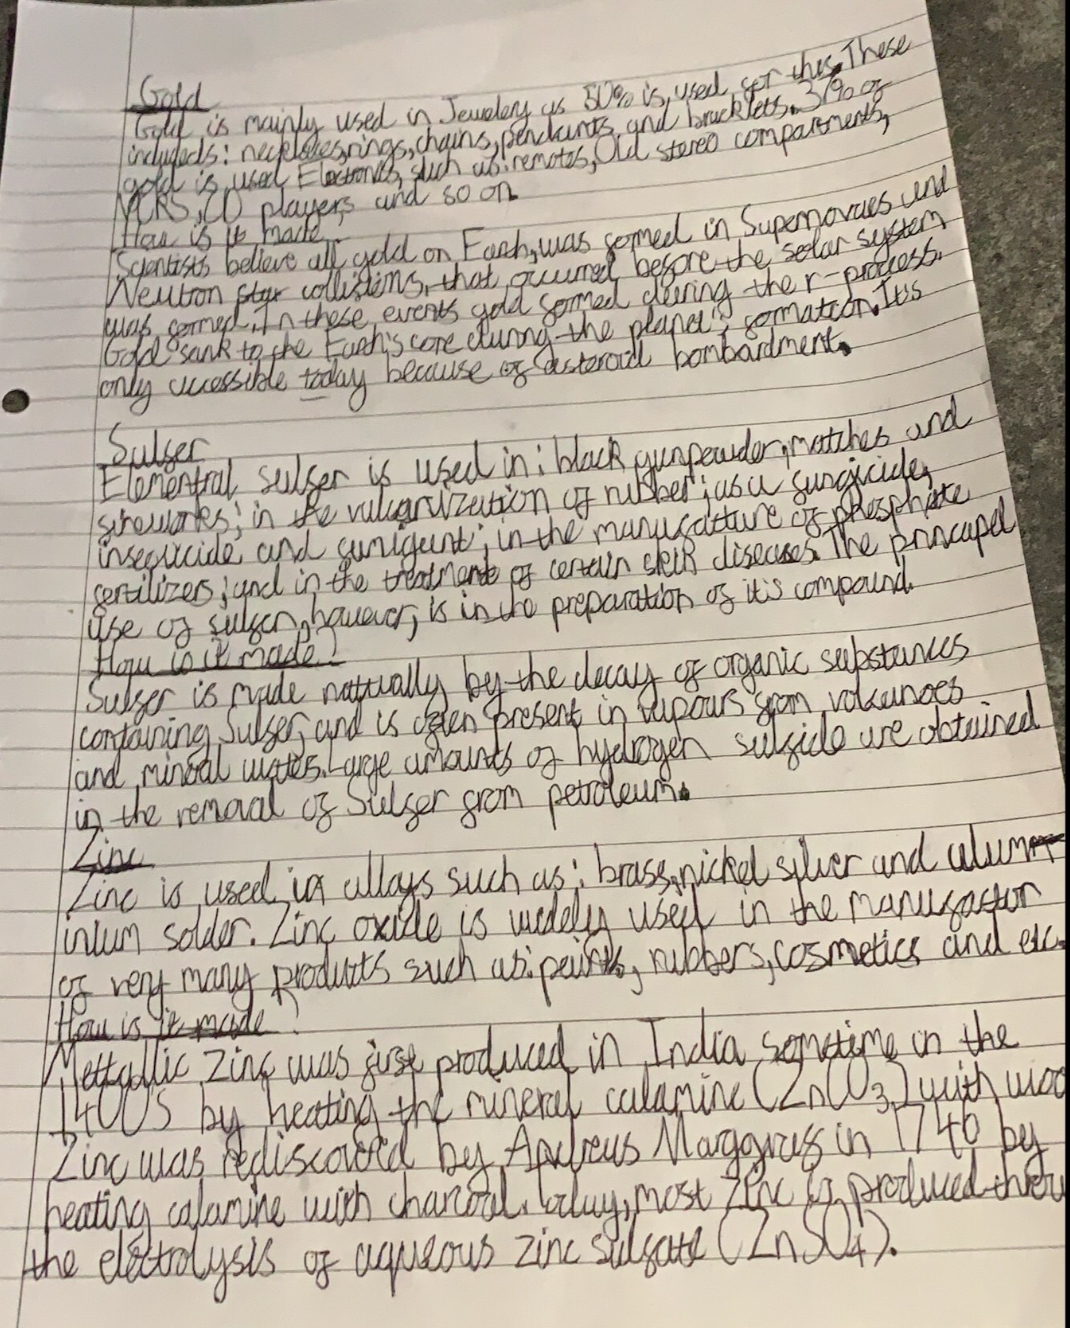 Gold
Gold is mainly used in Jewelery as 50% is used for this. These
includeds: necklesses, rings, chains, pendants, and bracklets. 37% of
gold is used Electronics, such as: remotes, Old stereo compartments,
VCRS, CD players and so on.
How is it made
Scientists believe all gold on Earth, was formed in Supernovaes and
Neutron star collistions, that occurred before the solar system
was formed. In these events gold formed during the r-process.
Gold sank to the Earth's core during the planet's formation. It's
only accessible today because of asteroid bombardment.
Sulfer
Elemental sulfer is used in: black gunpowder, matches and
fireworks; in the vulcanization of rubber; as a fungicide,
insecticide and fumigant; in the manufatture of phosphate
fertilizers; and in the treatment of certain skin diseases. The princapel
use of sulfer, however, is in the preparation of it's compound.
How is it made?
Sulfer is made naturally by the decay of organic substances
containing Sulfer, and is often present in vapours from volcanoes
and mineral waters. Large amounts of hydrogen sulfide are obtained
in the removal of Sulfer from petroleum.
Zinc
Zinc is used in alloys such as: brass, nickel silver and alum
inium solder. Zinc oxide is widely used in the manufactur
of very many products such as: paints, rubbers, cosmetics and etc.
How is it made?
Mettallic Zinc was first produced in India sometime in the
1400s by heating the mineral calamine (ZnCO3) with woo
Zinc was rediscovered by Andreas Marggraf in 1746 by
heating calamine with charcoal. Today, most Zinc is produced throu
the electrolysis of aqueous zinc sulfate (ZnSO4).